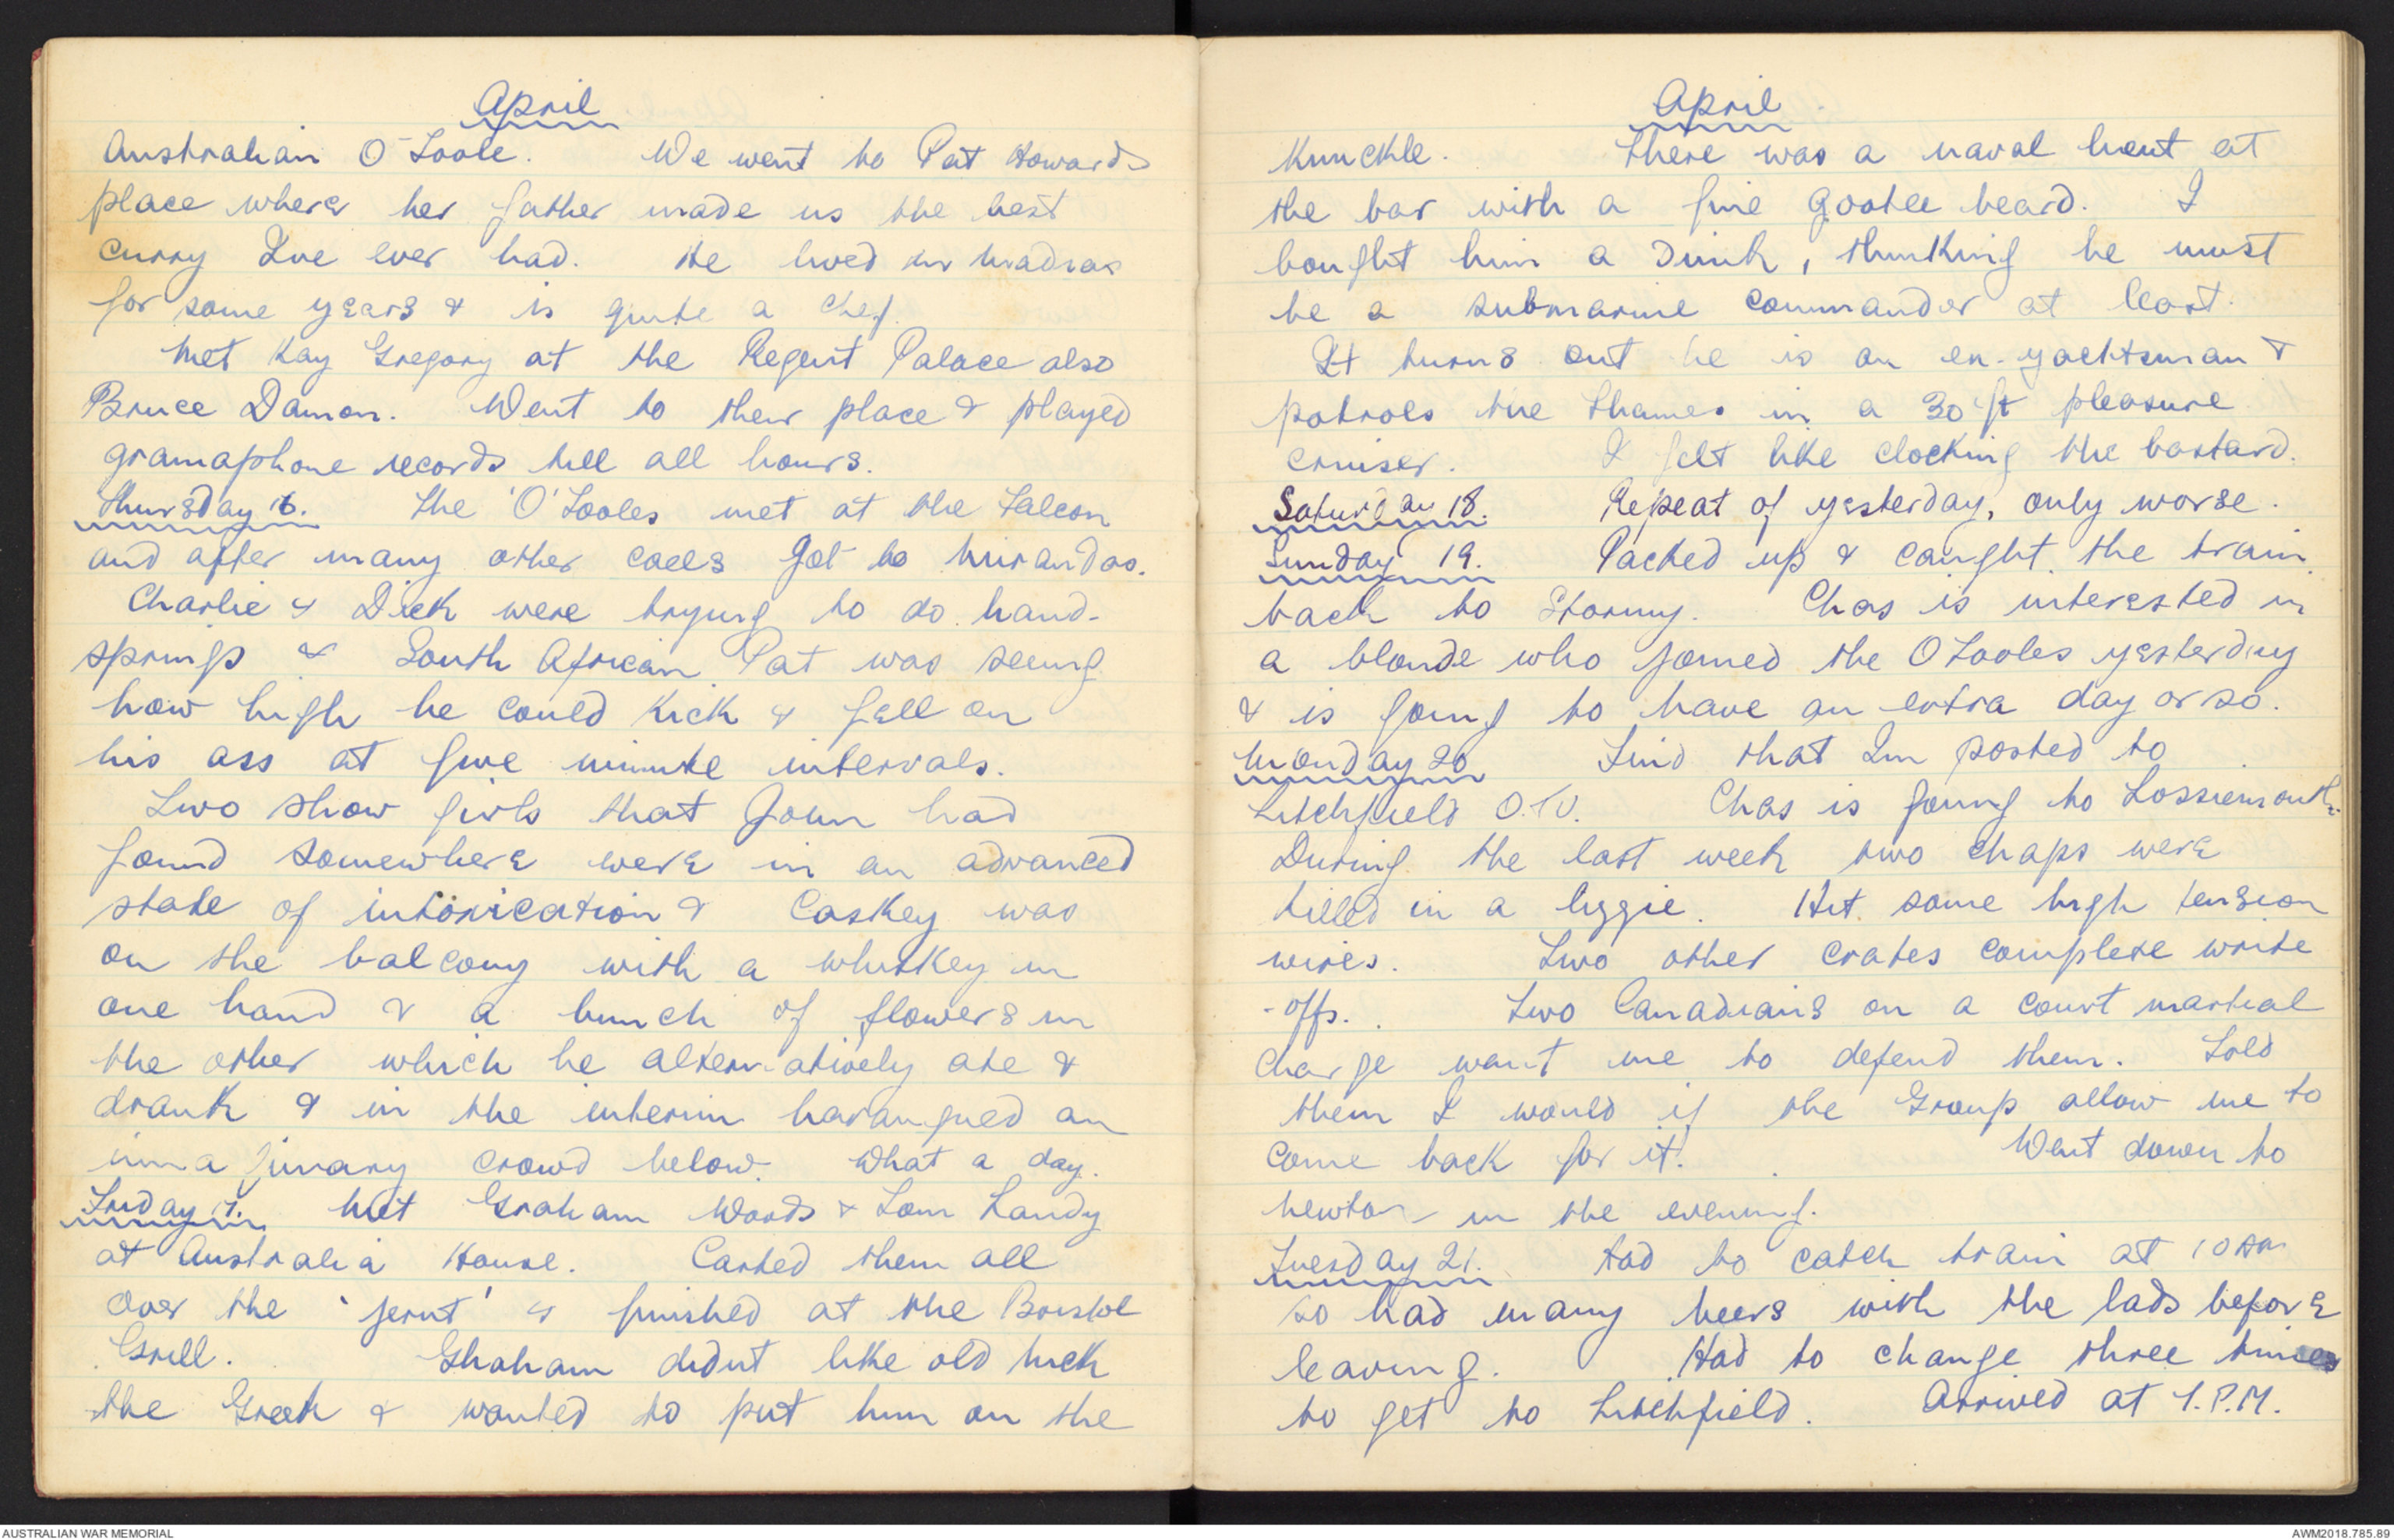 April
Australian O'Toole. We went to Pat Howards
place where her father made us the best
curry Ive ever had. He lived in Madras
for some years & is quite a chef.
Met Kay Gregory at the Regent Palace also
Bruce Damon. Went to their place & played
gramaphone records till all hours.
Thursday 16. The 'O'Tooles met at the Falcon
and after many other calls got to Mirandas.
Charlie & Dick were trying to do hand-
springs & South African Pat was seeing
how high he could kick & fell on
his ass at five minute intervals.
Two show girls that John had
found somewhere were in an advanced
state of intoxication & Caskey was
on the balcony with a whiskey in
one hand & a bunch of flowers in
the other which he alternatively ate &
drank & in the interim harangued an
immaginary crowd below. What a day.
Friday 17. Met Graham Woods & Tom Landy
at Australia House. Carted them all
over the 'jernt' & finished at the Bristol
Grill. Ghaham didnt like old Nick
the Greek & wanted to put him on the
April
Knuckle. There was a naval lieut at
the bar with a fine gootee beard. I
bought him a Drink, thinking he must
be a submarine commander at least.
It turns out he is an ex-yachtsman &
patrols the Thames in a 30 ft pleasure
cruiser. I felt like clocking the bastard.
Saturday 18. Repeat of yesterday, only worse.
Sunday 19. Packed up & caught the train
back to Stormy. Chas is interested in
a blonde who joined the OTooles yesterday
& is going to have an extra day or so.
Monday 20 Find that Im posted to
Litchfield O.T.U. Chas is going to Lossiemouth.
During the last week two chaps were
killed in a liggie. Hit some high tension
wires. Two other crates complete write
-offs. Two Canadians on a court martial
charge want me to defend them. Told
them I would if the Group allow me to
come back for it. Went down to
Newton in the evening.
Tuesday 21. Had to catch train at 10 AM
so had many beers with the lads before
leaving. Had to change three times
to get to Litchfield. Arrived at 7.P.M.
AUSTRALIAN WAR MEMORIAL
AWM2018.785.89